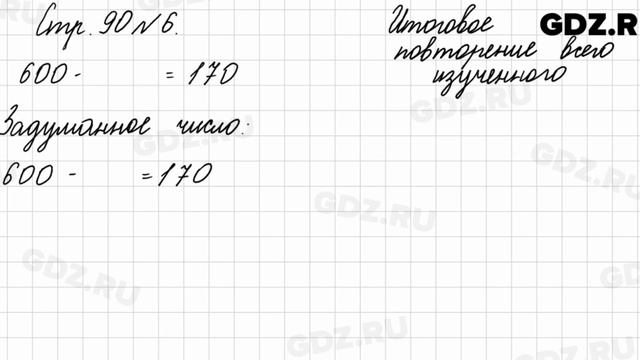 Стр. 90 № 6.
Итоговое
повторение всего
изученного
GDZ.R
600 -      = 170
Задуманное число:
600 -      = 170
GDZ.RU
GDZ.RU
GDZ.RU
GDZ.RU
GDZ.RU
GDZ.RU